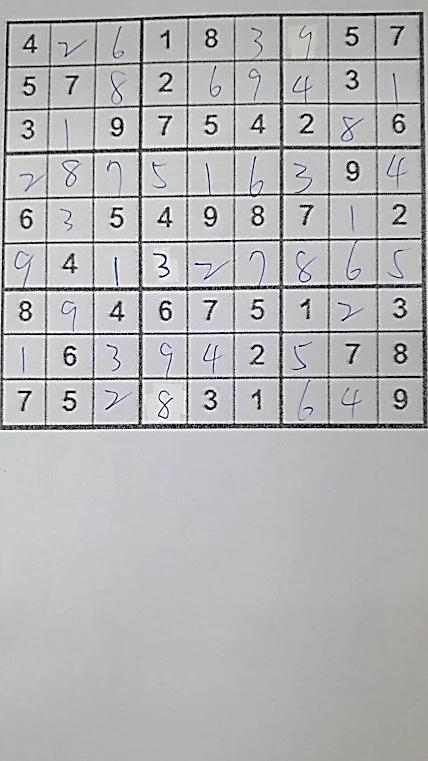 4 2 6 1 8 3 9 5 7
5 7 8 2 6 9 4 3 1
3 1 9 7 5 4 2 8 6
2 8 7 5 1 6 3 9 4
6 3 5 4 9 8 7 1 2
9 4 1 3 2 7 8 6 5
8 9 4 6 7 5 1 2 3
1 6 3 9 4 2 5 7 8
7 5 2 8 3 1 6 4 9